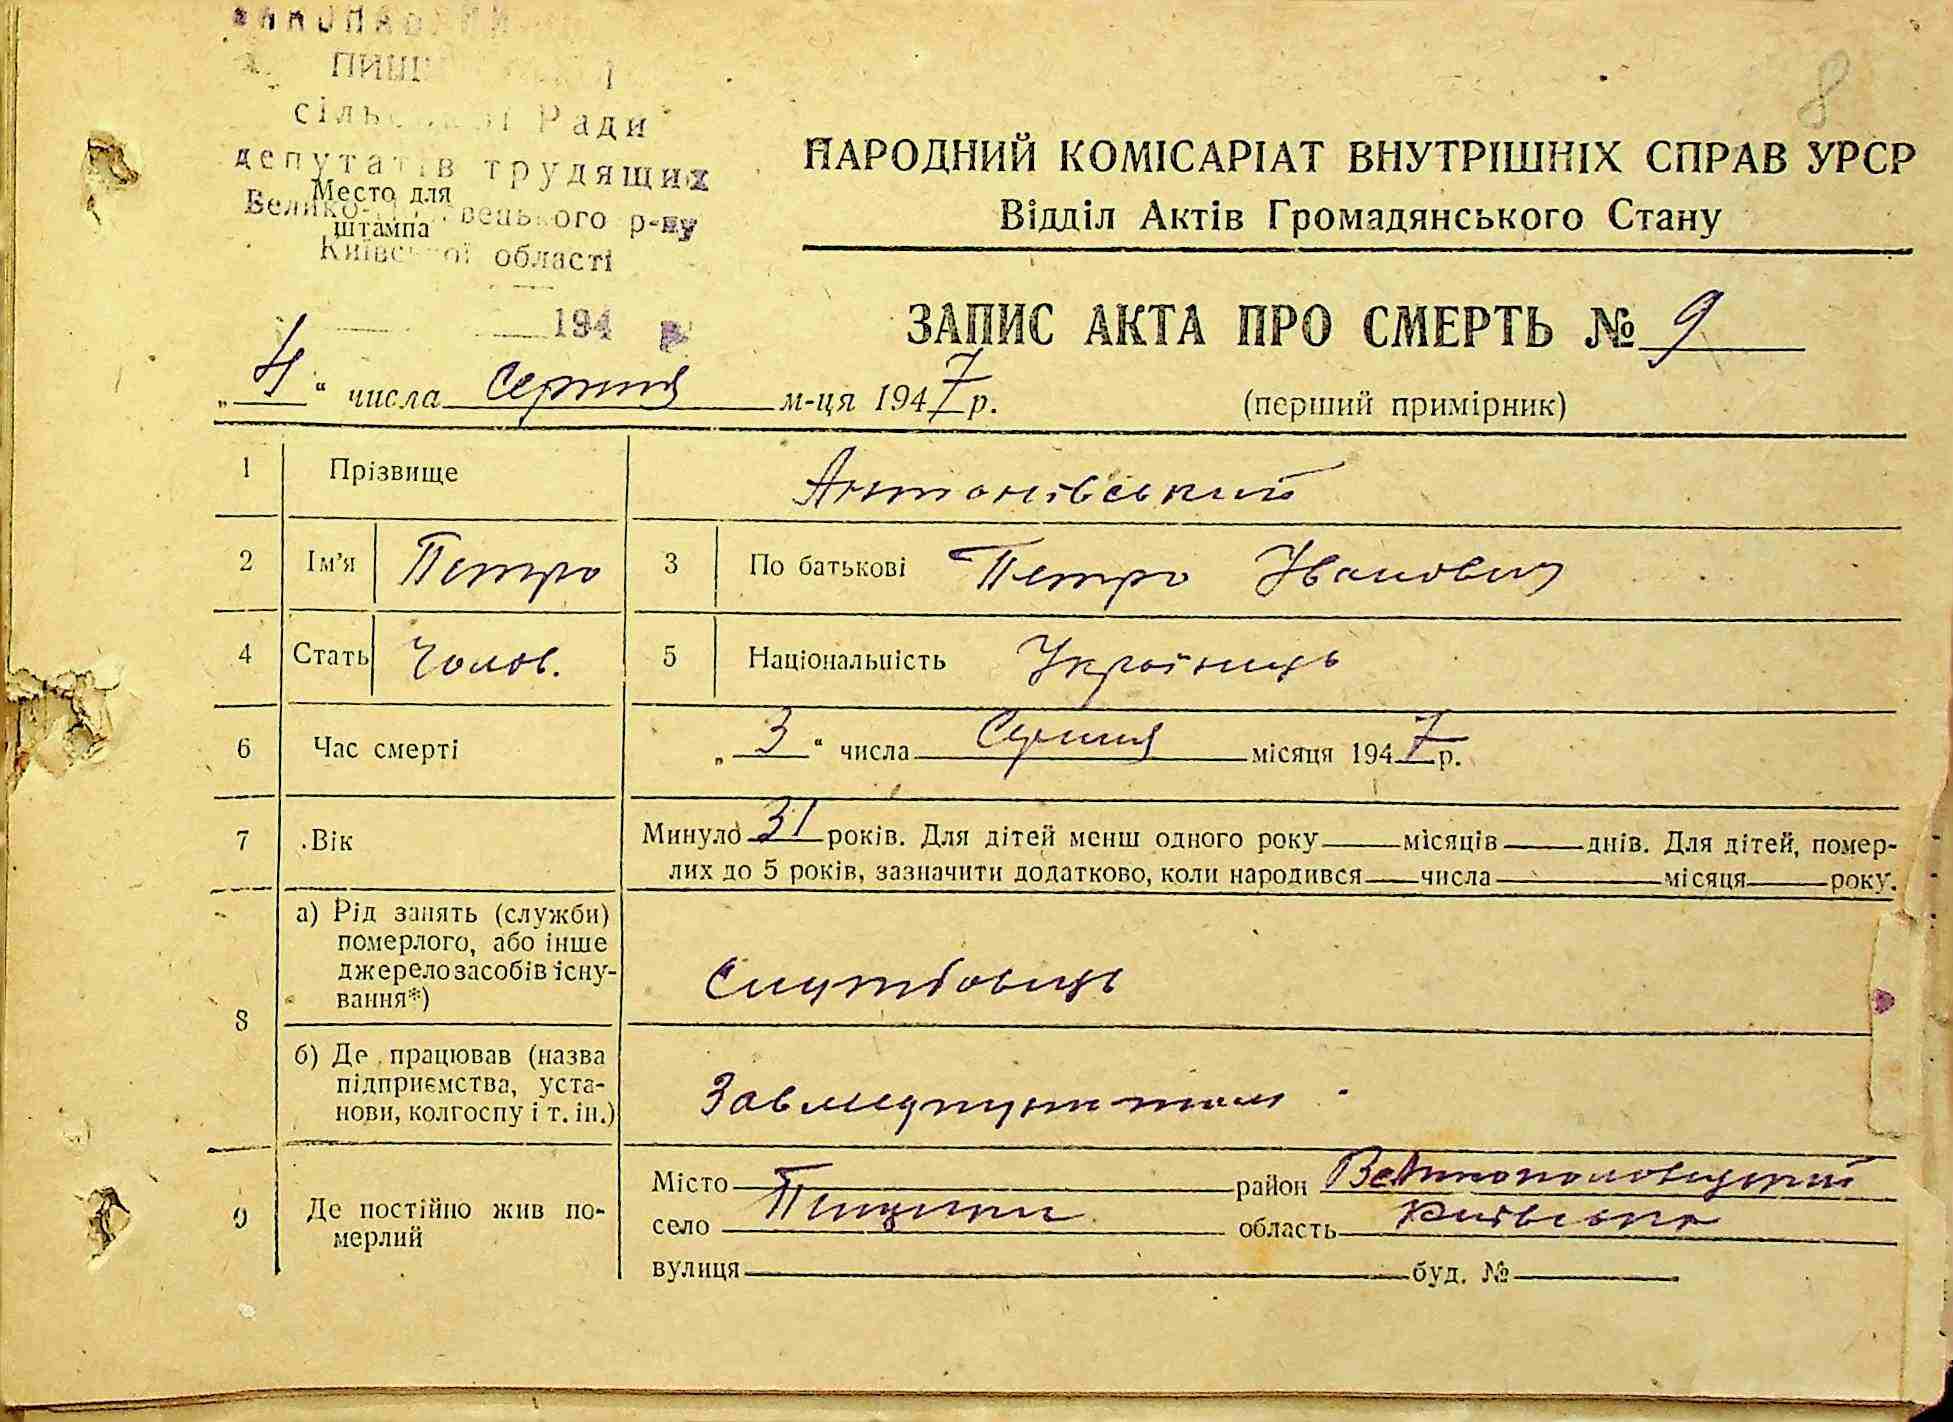 8
сільської Ради
депутатів трудящих
Место для
р-ну
штампа
Київської області
194
НАРОДНИЙ КОМІСАРІАТ ВНУТРІШНІХ СПРАВ УРСР
Відділ Актів Громадянського Стану
ЗАПИС АКТА ПРО СМЕРТЬ № 9
„4“ числа Серпня м-ця 1947 р.
(перший примірник)
1 Прізвище Антонівський
2 Ім'я Петро 3 По батькові Петро Іванович
4 Стать Чолов. 5 Національність Українець
6 Час смерті „3“ числа Серпня місяця 1947 р.
7 Вік Минуло 31 років. Для дітей менш одного року місяців днів. Для дітей, помер-
лих до 5 років, зазначити додатково, коли народився числа місяця року.
8 а) Рід занять (служби)
померлого, або інше
джерело засобів існу-
вання*)
Службовець
б) Де працював (назва
підприємства, уста-
нови, колгоспу і т. ін.)
Завмедпунктом
9 Де постійно жив по-
мерлий
Місто район Великополовецький
село Пищики область Київська
вулиця буд. №